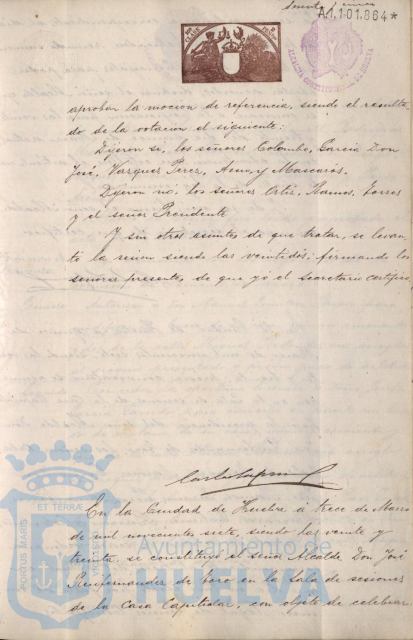 A.1.101.864*
aprobar la mocion de referencia, siendo el resulta-
do de la votacion el siguiente:
Dijeron si, los señores Colombo, Garcia Don
José, Vazquez Perez, y Mascarós.
Dijeron nó, los señores Ortiz, Ramos, Torres
y el señor Presidente
Y sin otros asuntos de que tratar, se levan-
tó la sesion siendo las veintidós; firmando los
señores presentes, de que yó el secretario certifico.
En la Ciudad de Huelva á trece de Marzo
de mil novecientos siete, siendo las veinte y
treinta se constituyó el señor Alcalde Don José
de Toro en la Sala de sesiones
de la Casa Capitular, con objeto de celebrar
PORTUS MARIS
ET TERRÆ
Ayuntamiento de
HUELVA